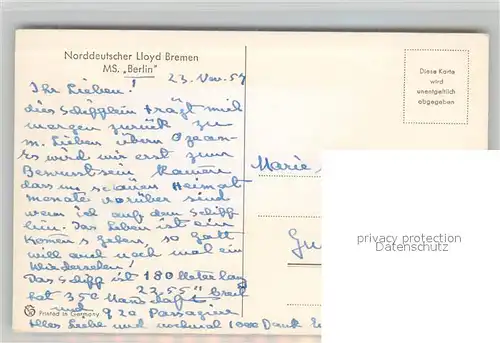 Norddeutscher Lloyd Bremen
MS. „Berlin"
23. Nov. 57
Ihr Lieben!
dies Schifflein trägt mich
morgen zurück zu
m. Lieben übern Ozean-
Es wird mir erst zum
Bewusstsein kommen
dass m. schönen Heimat
monate vorüber sind
wenn ich auf dem Schiff
bin. Das Leben ist ein
Kommen & Gehen, so Gott
will auch noch mal ein
Wiedersehen!
Das Schiff ist 180 Meter lang
23.55" breit
hat 350 Mannschaft
und 920 Passagiere
Alles Liebe und nochmal 1000 Dank
Printed in Germany
Diese Karte
wird
unentgeltlich
abgegeben
Marie
privacy protection
Datenschutz